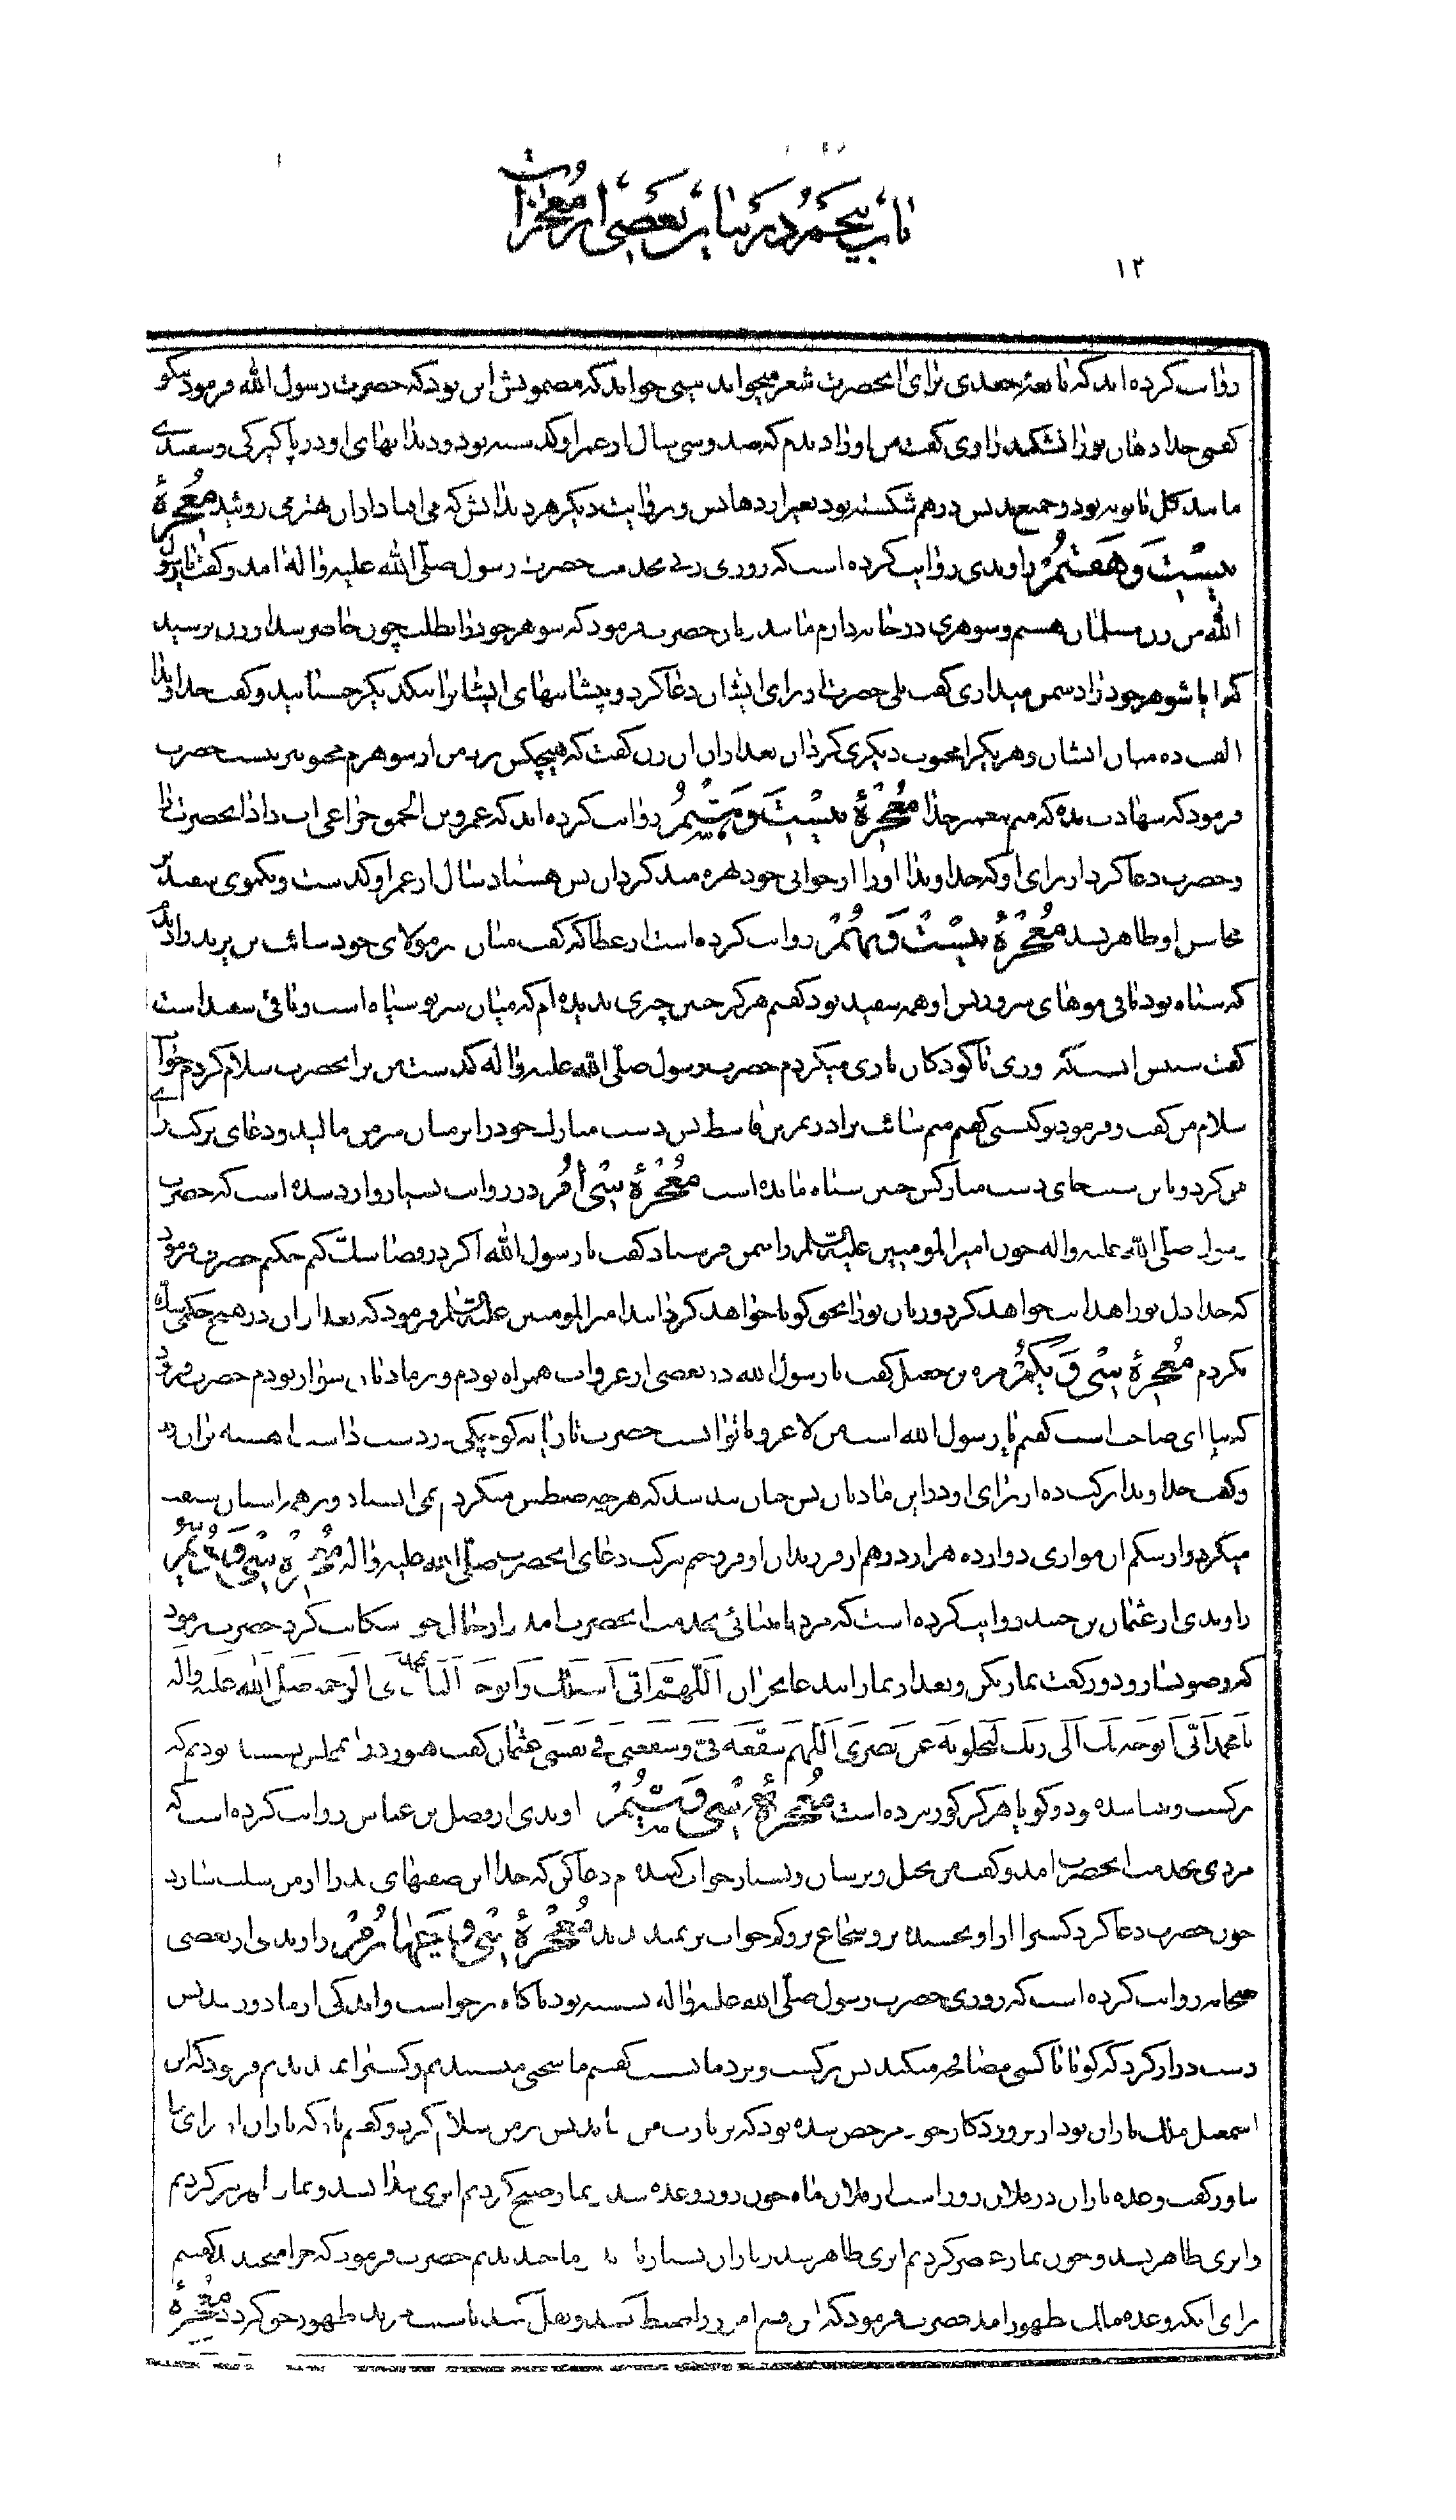 باب پنجم در بیان بعضی از معجزات
۱۲
روایت کرده‌اند که نابغه جعدی برای آنحضرت شعر میخواند بیتی خواند که مضمونش این بود که حضرت رسول الله فرمود نیکو
گفتی خدا دهان تورا نشکند راوی گفت من اورا دیدم که صد و سی سال از عمر او گذشته بود و دندانهای او در پاکیزگی و سفیدی
مانند گل بابونه بود و جمیع بدنش درهم شکسته بود بغیر از دهانش و بروایت دیگر هر دندانش که می‌افتاد از آن بهتر می‌روئید معجزهٔ
بیست و هفتم راوندی روایت کرده است که روزی زنی بخدمت حضرت رسول صلّی الله علیه واله آمد و گفت یا رسول
الله من زن مسلمان هستم و شوهری در خانه دارم مانند زنان حضرت فرمود که شوهر خود را بطلب چون حاضر شد از زن پرسید
که آیا شوهر خود را دشمن میداری گفت بلی حضرت از برای ایشان دعا کرد و پیشانیهای ایشان را بیکدیگر چسبانید و گفت خداوندا
الفت ده میان ایشان و هریک را محبوب دیگری گردان بعد از آن آن زن گفت که هیچکس نزد من از شوهرم محبوبتر نیست حضرت
فرمود که شهادت بده که منم پیغمبر خدا معجزهٔ بیست و هشتم روایت کرده‌اند که عمرو بن الحمق خزاعی آب داد آنحضرت را
و حضرت دعا کرد از برای او که خداوندا اورا از جوانی خود بهره‌مند گردان پس هشتاد سال از عمر او گذشت و یکموی سفید در
محاسن او ظاهر نشد معجزهٔ بیست و نهم روایت کرده است از عطا که گفت میان سر مولای خود سائب بن یزید را دیدم
که سیاه بود و باقی موهای سر و ریش او همه سفید بود گفتم هرگز چنین چیزی ندیده‌ام که میان سر تو سیاه است و باقی سفید است
گفت سببش آنست که روزی با کودکان بازی میکردم حضرت رسول صلّی الله علیه واله گذشت من بر آنحضرت سلام کردم جواب
سلام من گفت و فرمود تو کیستی گفتم منم سائب برادر نمر بن قاسط پس دست مبارک خود را بر میان سر من مالید و دعای برکت برای
من کرد و باین سبب جای دست مبارکش چنین سیاه مانده است معجزهٔ سی‌ام در روایت بسیار وارد شده است که حضرت
رسول صلّی الله علیه واله چون امیر المومنین علیه السلام را بیمن فرستاد گفت یا رسول الله حضرت فرمود
که خدا دل تورا هدایت خواهد کرد و زبان تورا بحق گویا خواهد گردانید امیر المومنین علیه السلام فرمود که بعد از آن در هیچ حکمی شک
نکردم معجزهٔ سی و یکم مره بن جعیل گفت با رسول الله در بعضی از غزوات همراه بودم و بر مادیان سوار بودم حضرت فرمود
که بیا ای صاحب اسب گفتم یا رسول الله اسب من لاغر و ناتوانست حضرت تازیانه کوچکی در دست داشت آهسته بر آن زد
و گفت خداوندا برکت ده از برای او در این مادیان پس چنان تند شد که هر چه ضبطش میکردم نمی‌ایستاد و بر همه اسبان سبقت
میگرفت و از شکم آن موازی دوازده هزار درهم از فرزندان او فروختم ببرکت دعای آنحضرت صلّی الله علیه واله معجزهٔ سی و دویم
راوندی از عثمان بن جنید روایت کرده است که مرد نابینائی بخدمت آنحضرت آمد و از حال خود شکایت کرد حضرت فرمود
که وضو بساز و دو رکعت نماز بکن و بعد از نماز این دعا بخوان اللّهمّ انّی اسئلک و اتوجه الیک بمحمد نبی الرحمه صلّی الله علیه واله
یا محمد انّی اتوجه بک الی ربک لیجلو به عن بصری اللهم شفعه فیّ و شفعنی فی نفسی عثمان گفت هنوز در آن مجلس نشسته بودیم که
برگشت و بینا شده بود و گویا هرگز کور نبوده است معجزهٔ سی و سیم راوندی از فضل بن عباس روایت کرده است که
مردی بخدمت آنحضرت آمد و گفت من بخیل و ترسان و بسیار خواب کننده‌ام دعا کن که خدا این صفتهای بد را از من سلب نماید
چون حضرت دعا کرد کسی را از او بخشنده‌تر و شجاع‌تر و کم خواب‌تر ندیدند معجزهٔ سی و چهارم راوندی از بعضی
صحابه روایت کرده است که روزی حضرت رسول صلّی الله علیه واله نشسته بود ناگاه برخواست و اندکی از ما دور شد پس
دست دراز کرد که گویا با کسی مصافحه میکند پس برگشت و نزد ما نشست گفتیم ما سخن می‌شنیدیم و کسی را نمی‌دیدیم فرمود که این
اسمعیل ملک باران بود از پروردگار خود مرخص شده بود که بزیارت من بیاید پس بر من سلام کرد و گفتم باو که باران از برای ما
بیاور گفت وعده باران در فلان روز است از فلان ماه چون روز وعده شد نماز صبح کردیم ابری پیدا نشد و نماز ظهر نیز کردیم
و ابری ظاهر نشد و چون نماز عصر کردیم ابری ظاهر شد و باران بسیار بارید ما خندیدیم حضرت فرمود که چرا میخندید گفتیم
برای آنکه وعده ملک ظهور آمد حضرت فرمود که این قسم امور را ضبط کنید و نقل کنید